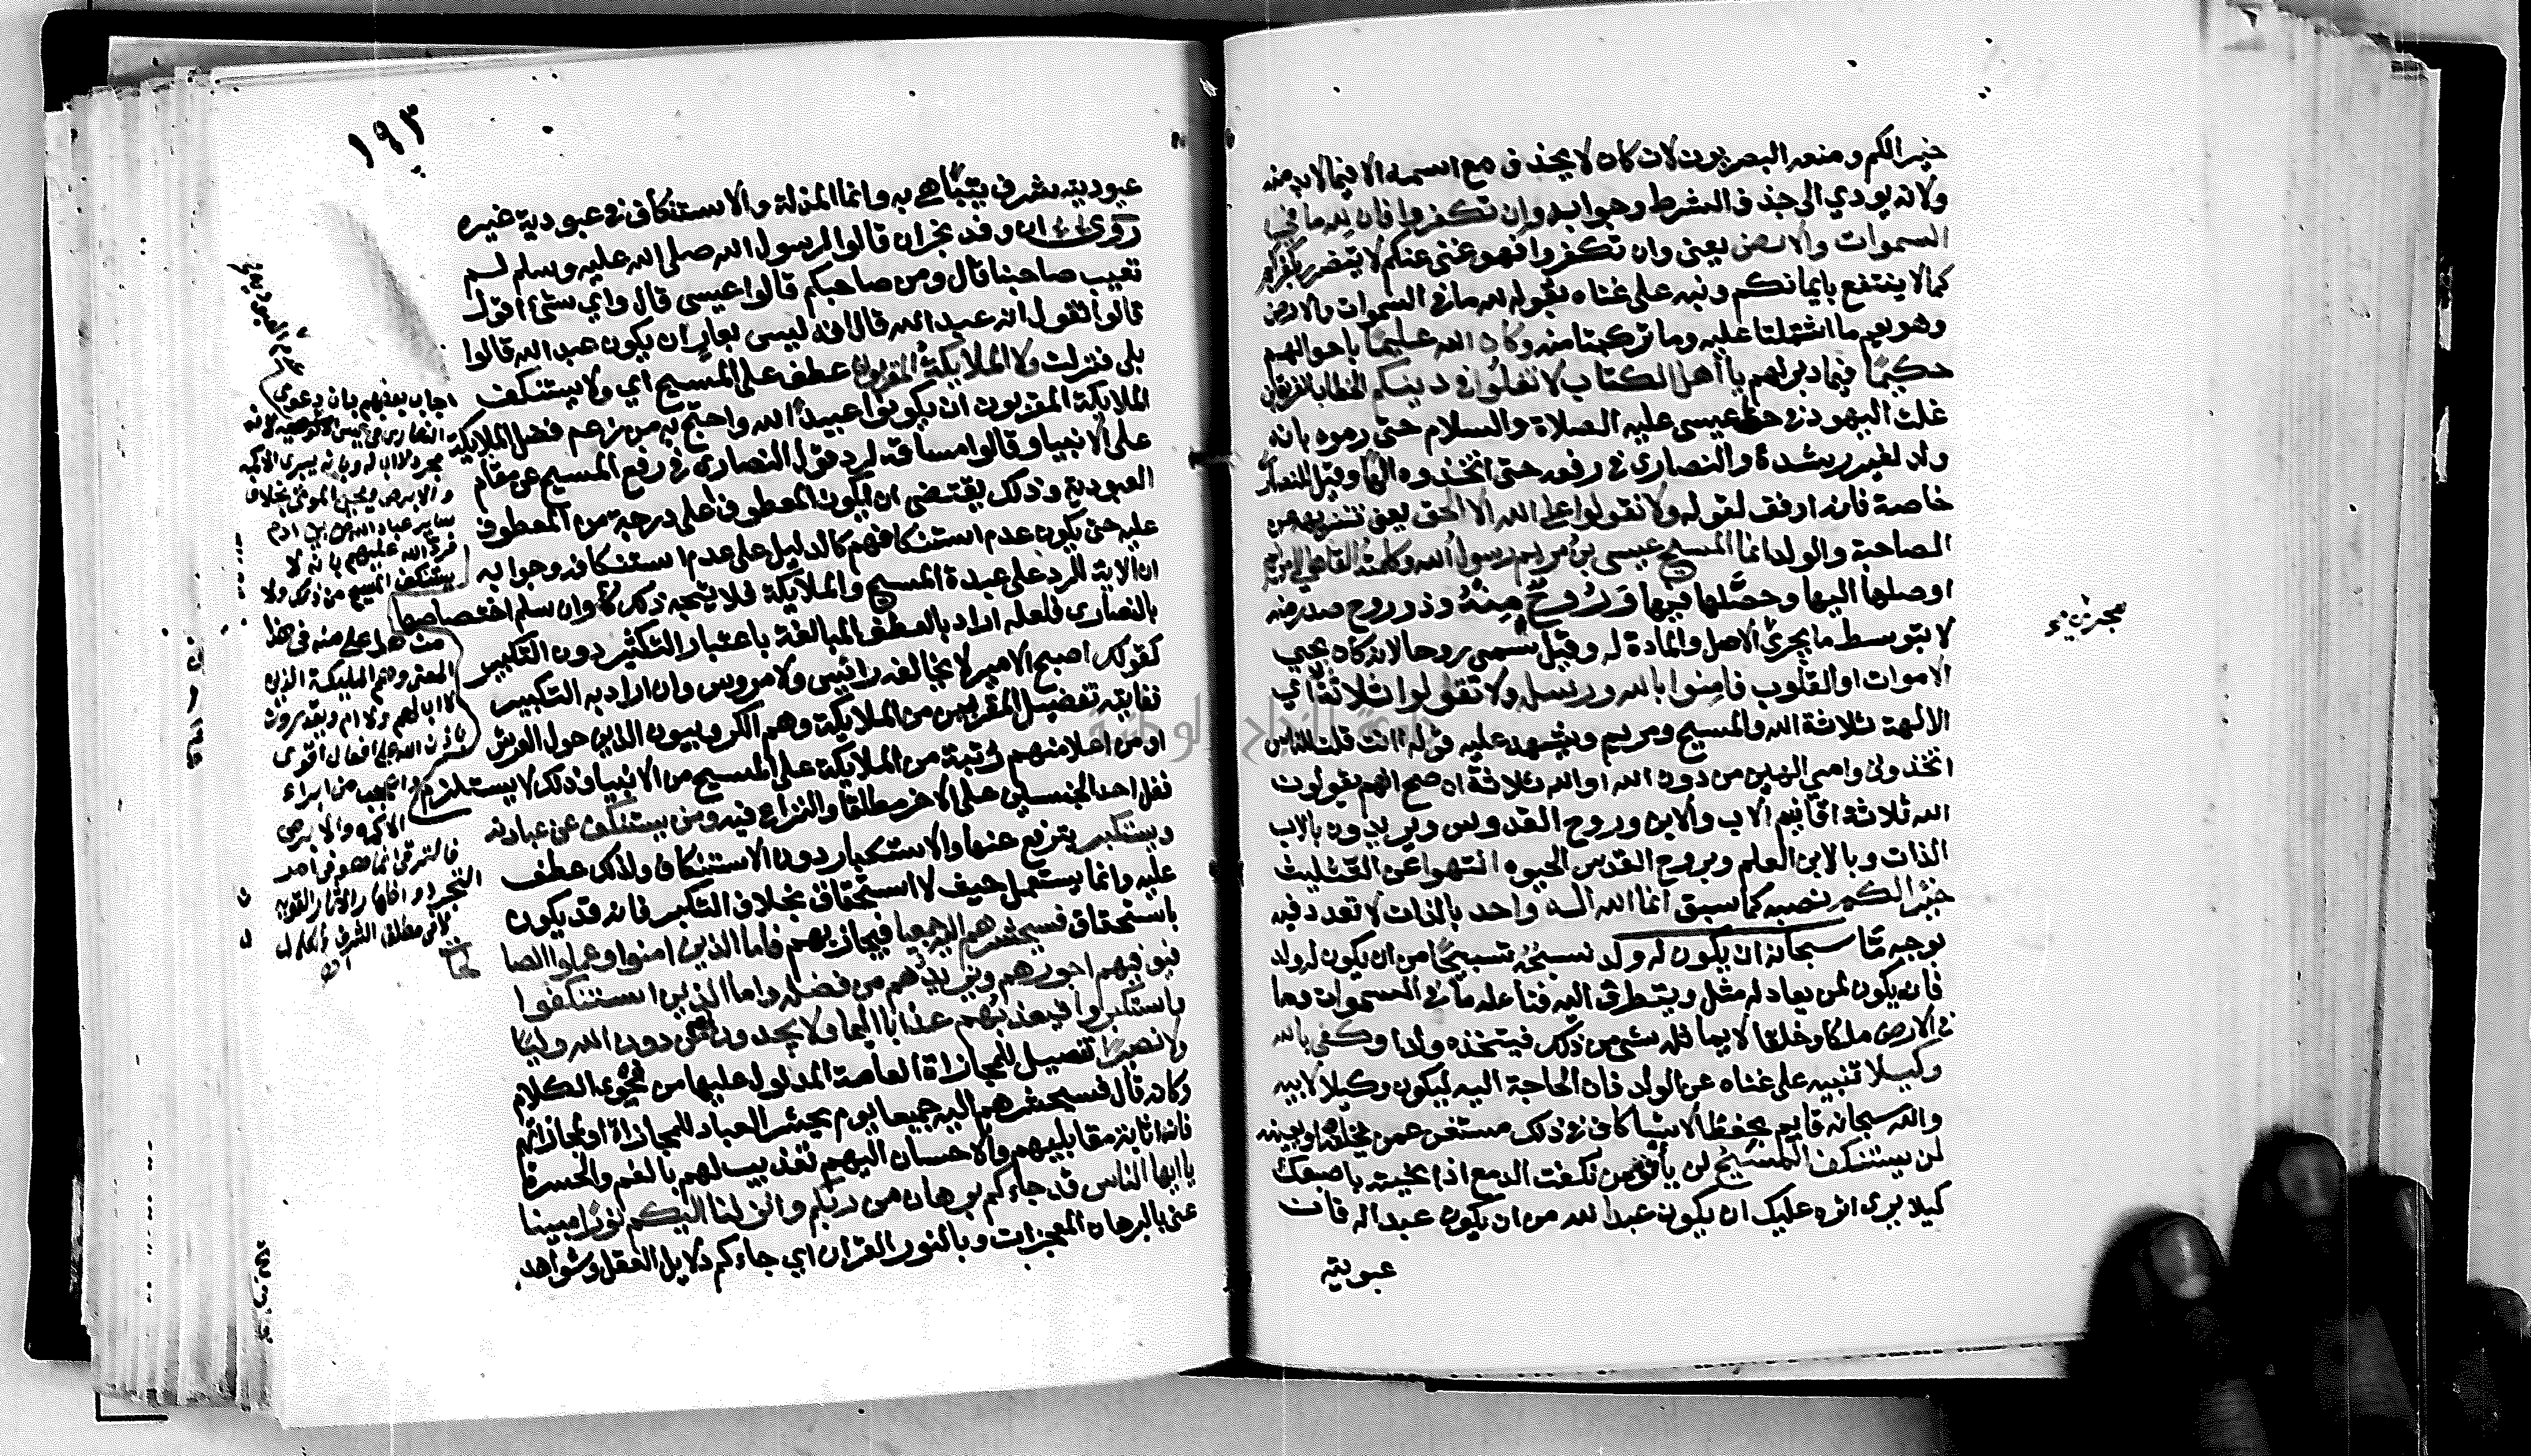 خيرا لكم ومنعه البصريون لان كان لا يحذف مع اسمه الا فيما لابد منه
ولانه يودي الى حذف الشرط وجوابه وان تكفروا فان لله ما في
السموات والارض يعني وان تكفروا فهو غني عنكم لا يتضرر بكفركم
كما لا ينتفع بايمانكم ونبه على غناه بقوله لله ما في السموات والارض
وهو يعم ما اشتملتا عليه وما تركبتا منه وكان الله عليمًا باحوالهم
حكيمًا فيما دبر لهم يا أهل الكتاب لا تغلوا في دينكم الخطاب للفريقين
غلت اليهود في حط عيسى عليه الصلاة والسلام حتى رموه بانه
ولد لغير رشدة والنصارى في رفعه حتى اتخذوه الها وقيل للنصارى
خاصة فانه اوفق لقوله ولا تقولوا على الله الا الحق يعني تنزيهه عن
الصاحبة والولد انما المسيح عيسى بن مريم رسول الله وكلمته القاها الى مريم
اوصلها اليها وحصّلها فيها وَرُوحٌ مِنْهُ وذو روح صدر منه
لا بتوسط ما يجري الاصل والمادة له وقيل سمي روحا لانه كان يحيي
الاموات او القلوب فامنوا بالله ورسله ولا تقولوا ثلاثة أي
الالهة ثلاثة الله والمسيح ومريم ويشهد عليه قوله أانت قلت للناس
اتخذوني وامي الهين من دون الله او الله ثلاثة ان صح انهم يقولون
الله ثلاثة اقانيم الاب والابن وروح القدوس ويريدون بالاب
الذات وبالابن العلم وبروح القدس الحيوه انتهوا عن التثليث
خيرا لكم نصبه كما سبق انما الله اله واحد بالذات لا تعدد فيه
بوجه مّا سبحانه ان يكون له ولد نسبحُه تسبيحًا من ان يكون له ولد
فانه يكون لمن يعادله مثل ويتطرق اليه فنا له ما في السموات وما
في الارض ملكا وخلقا لا يماثله شي من ذلك فيتخذه ولدا وكفى بالله
وكيلا تنبيه على غناه عن الولد فان الحاجة اليه ليكون وكيلا لابيه
والله سبحانه قايم بحفظ الاشيا كاف في ذلك مستغن عمن يخلفه او يعينه
لن يستنكف المسيح لن يأنف من نكفت الدمع اذا نحيته باصبعك
كيلا يرى اثره عليك ان يكون عبدا لله من ان يكون عبدا له فان
عبوديته
عبوديته شرف يتباهى به وانما المذلة والاستنكاف في عبودية غيره
روى ان وفد نجران قالوا لرسول الله صلى الله عليه وسلم لم
تعيب صاحبنا قال ومن صاحبكم قالوا عيسى قال واي شئ اقول
قالوا تقول انه عبد الله قال انه ليس بعارٍ ان يكون عبد الله قالوا
بلى فنزلت ولا الملايكة المقربون عطف على المسيح اي ولا يستنكف
الملايكة المقربون ان يكونوا عبيدا لله واحتج به من زعم فضل الملايكة
على الانبيا وقالوا مساقه لرد قول النصارى في رفع المسيح عن مقام
العبودية وذلك يقتضي ان يكون المعطوف اعلى درجة من المعطوف
عليه حتى يكون عدم استنكافهم كالدليل على عدم استنكافه وجوابه
ان الاية للرد على عبدة المسيح والملايكة فلا يتجه ذلك وان سلم اختصاصها
بالنصارى فلعله اراد بالعطف المبالغة باعتبار التكثير دون التكبير
كقولك اصبح الامير لا يخالفه رائيس ولا مرؤس وان اراد به التكبير
فغايته تفضيل المقربين من الملايكة وهم الكروبيون الذين حول العرش
او من اعلا منهم رتبة من الملايكة على المسيح من الانبيا وذلك لا يستلزم
فضل احد الجنسين على الاخر مطلقا والنزاع فيه ومن يستنكف عن عبادته
ويستكبر يترفع عنها والاستكبار دون الاستنكاف ولذلك عطف
عليه وانما يستعمل حيث لا استحقاق بخلاف التكبر فانه قد يكون
باستحقاق فسيحشرهم اليه جميعا فيجازيهم فاما الذين امنوا وعملوا الصا
فيوفيهم اجورهم ويزيدهم من فضله واما الذين استنكفوا
واستكبروا فيعذبهم عذابا اليما ولا يجدون لهم من دون الله وليا
ولا نصيرا تفصيل للمجازاة العامة المدلول عليها من فحوى الكلام
وكانه قال فسيحشرهم اليه جميعا يوم يحشر العباد للمجازاة او لمجازاتهم
فان اثابة مقابليهم والاحسان اليهم تعذيب لهم بالغم والحسرة
يا ايها الناس قد جاءكم برهان من ربكم وانزلنا اليكم نورا مبينا
عنى بالبرهان المعجزات وبالنور القران اي جاءكم دلايل العقل وشواهد
١٩٣
اجاب بعضهم بان دعوى
النصارى في عيسى الالوهية لانه
مجرد لا اب له وبانه يبري الاكمه
والابرص ويحيي الموتى بخلاف
ساير عباد الله من بني ادم
فرد الله عليهم بانه لا
يستنكف المسيح من ذلك ولا
من هو اعلى منه في هذا
المعنى وهم المليكة الذين
لا اب لهم ولا ام ويقدرون
باذن الله على افعال اقوى
واعجب من ابراء
الاكمه والابرص
فالترقي انما هو في امر
التجرد واظهار الاثار القوية
لا في مطلق الشرف والكمال